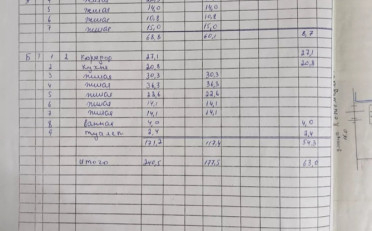 5 жилая 14,0 14,0
6 жилая 10,8 10,8
7 жилая 15,0 15,0
68,8 60,1 8,7
Б 1 1 1 Коридор 27,1 27,1
2 Кухня 20,8 20,8
3 жилая 30,3 30,3
4 жилая 36,3 36,3
5 жилая 22,6 22,6
6 жилая 14,1 14,1
7 жилая 14,1 14,1
8 Ванная 4,0 4,0
9 туалет 2,4 2,4
171,7 117,4 54,3
итого 240,5 177,5 63,0